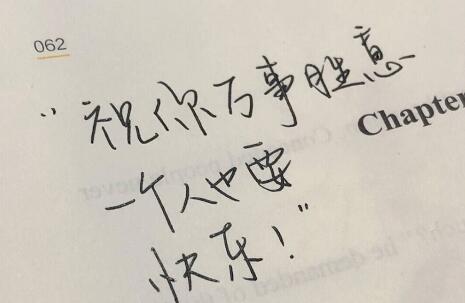 062
“祝你万事胜意
Chapter
一个人也要
快乐！”